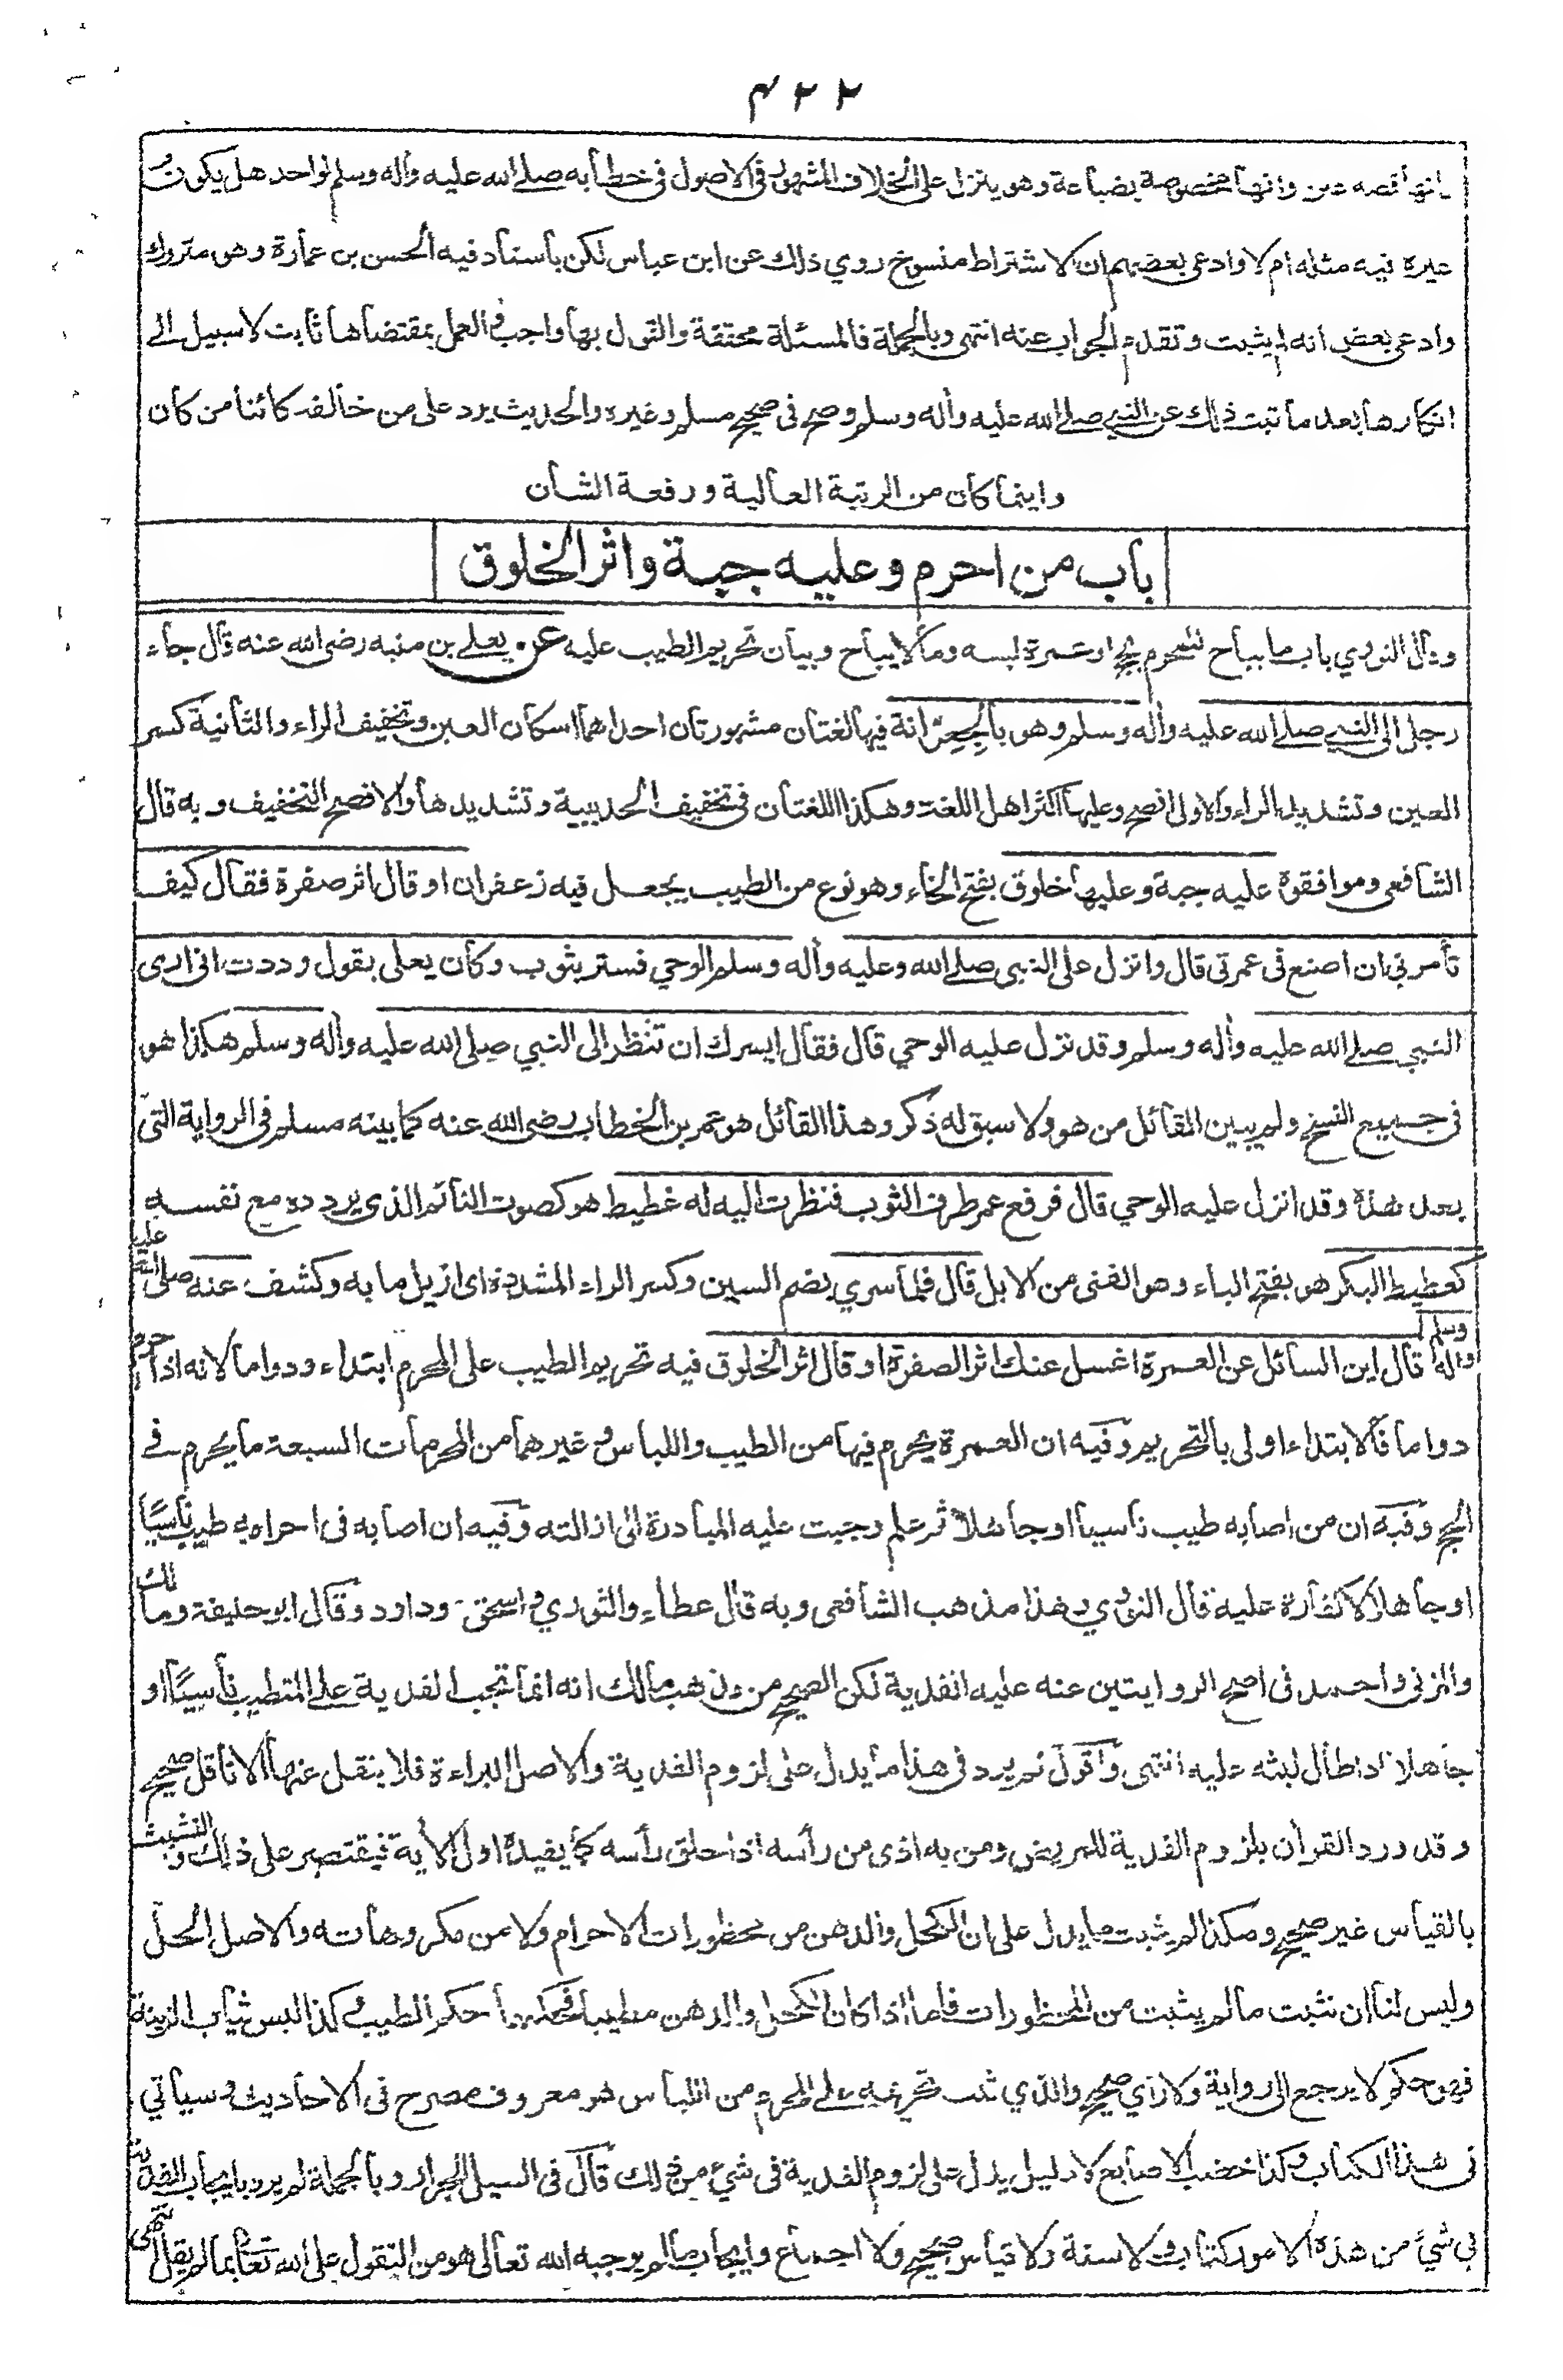 ۴۲۲
انها قصة عين وانها مخصوصة بضباعة وهو يتنزل على الخلاف المشهور فى الاصول فى خطابه صلى الله عليه وأله وسلم لواحد هل يكون
غيره فيه مثله ام لا وادعى بعضهم ان الاشتراط منسوخ روي ذلك عن ابن عباس لكن باسناد فيه الحسن بن عمارة وهو متروك
وادعى بعض انه لم يثبت وتقدم الجواب عنه انتهى وبالجملة فالمسئلة محققة والقول بها واجب فى العمل بمقتضاها ثابت لا سبيل الى
انكارها بعد ما ثبت ذلك عن النبي صلى الله عليه وأله وسلم وصح فى صحيح مسلم وغيره والحديث يرد على من خالفه كائنا من كان
واينما كان من الرتبة العالية ورفعة الشان
باب من احرم وعليه جبة واثر الخلوق
وقال النووي باب ما يباح للمحرم بحج او عمرة لبسه وما لا يباح وبيان تحريم الطيب عليه عن يعلى بن منبه رضى الله عنه قال جاء
رجل الى النبي صلى الله عليه وأله وسلم وهو بالجعرّانة فيها لغتان مشهورتان احداهما اسكان العين وتخفيف الراء والثانية كسر
العين وتشديد الراء والاولى افصح وعليها اكثر اهل اللغة وهكذا اللغتان فى تخفيف الحديبية وتشديدها والافصح التخفيف وبه قال
الشافعى وموافقوه عليه جبة وعليها خلوق بفتح الخاء وهو نوع من الطيب يجعل فيه زعفران او قال اثر صفرة فقال كيف
تأمرني ان اصنع فى عمرتى قال وانزل على النبى صلى الله وعليه وأله وسلم الوحي فستر بثوب وكان يعلى يقول وددت انى ارى
النبي صلى الله عليه وأله وسلم وقد نزل عليه الوحي قال فقال ايسرك ان تنظر الى النبي صلى الله عليه وأله وسلم هكذا هو
فى جميع النسخ ولم يبين القائل من هو ولا سبق له ذكر وهذا القائل هو عمر بن الخطاب رضى الله عنه كما بينه مسلم فى الرواية التى
بعد هذه وقد انزل عليه الوحي قال فرفع عمر طرف الثوب فنظرت اليه له غطيط هو كصوت النائم الذى يردده مع نفسه
كغطيط البكر هو بفتح الباء وهو الفتى من الابل قال فلما سري بضم السين وكسر الراء المشددة اى ازيل ما به وكشف عنه صلى الله عليه
وأله وسلم قال اين السائل عن العمرة اغسل عنك اثر الصفرة او قال اثر الخلوق فيه تحريم الطيب على المحرم ابتداء ودواما لانه اذا حرم
دواما فالابتداء اولى بالتحريم وفيه ان العمرة يحرم فيها من الطيب واللباس وغيرهما من المحرمات السبعة ما يحرم فى
الحج وفيه ان من اصابه طيب ناسيا او جاهلا ثم علم وجبت عليه المبادرة الى ازالته وفيه ان اصابه فى احرامه طيب ناسيًا
او جاهلا لا كفارة عليه قال النووي وهذا مذهب الشافعى وبه قال عطاء والثوري واسحق وداود وقال ابو حنيفة ومالك
والمزنى واحمد فى اصح الروايتين عنه عليه الفدية لكن الصحيح من مذهب مالك انه انما تجب الفدية على المتطيب ناسيًا او
جاهلا اذا طال لبثه عليه انتهى واقول لم يرد فى هذا ما يدل على لزوم الفدية والاصل البراءة فلا ينقل عنها الا ناقل صحيح
وقد ورد القرأن بلزوم الفدية للمريض ومن به اذى من رأسه اذا حلق رأسه كما يفيده اول الأية فيقتصر على ذلك والتشبث
بالقياس غير صحيح وهكذا لم يثبت ما يدل على ان الكحل والدهن من محظورات الاحرام ولا من مكروهاته والاصل الحلّ
وليس لنا ان نثبت ما لم يثبت من المحظورات فاما اذا كان الكحل والدهن مطيبا فحكمهما حكم الطيب وكذا لبس ثياب الزينة
فهو حكم لا يرجع الى رواية ولا رأي صحيح والذي ثبت تحريمه على المحرم من اللباس هو معروف مصرح فى الاحاديث وسيأتي
فى هذا الكتاب وكذا خضب الاصابع لا دليل يدل على لزوم الفدية فى شيء من ذلك قال فى السيل الجرار وبالجملة لم يرد بايجاب الفدية
فى شيء من هذه الامور كتاب ولا سنة ولا قياس صحيح ولا اجماع وايجاب ما لم يوجبه الله تعالى هو من التقول على الله تعالى بما لم يقل انتهى